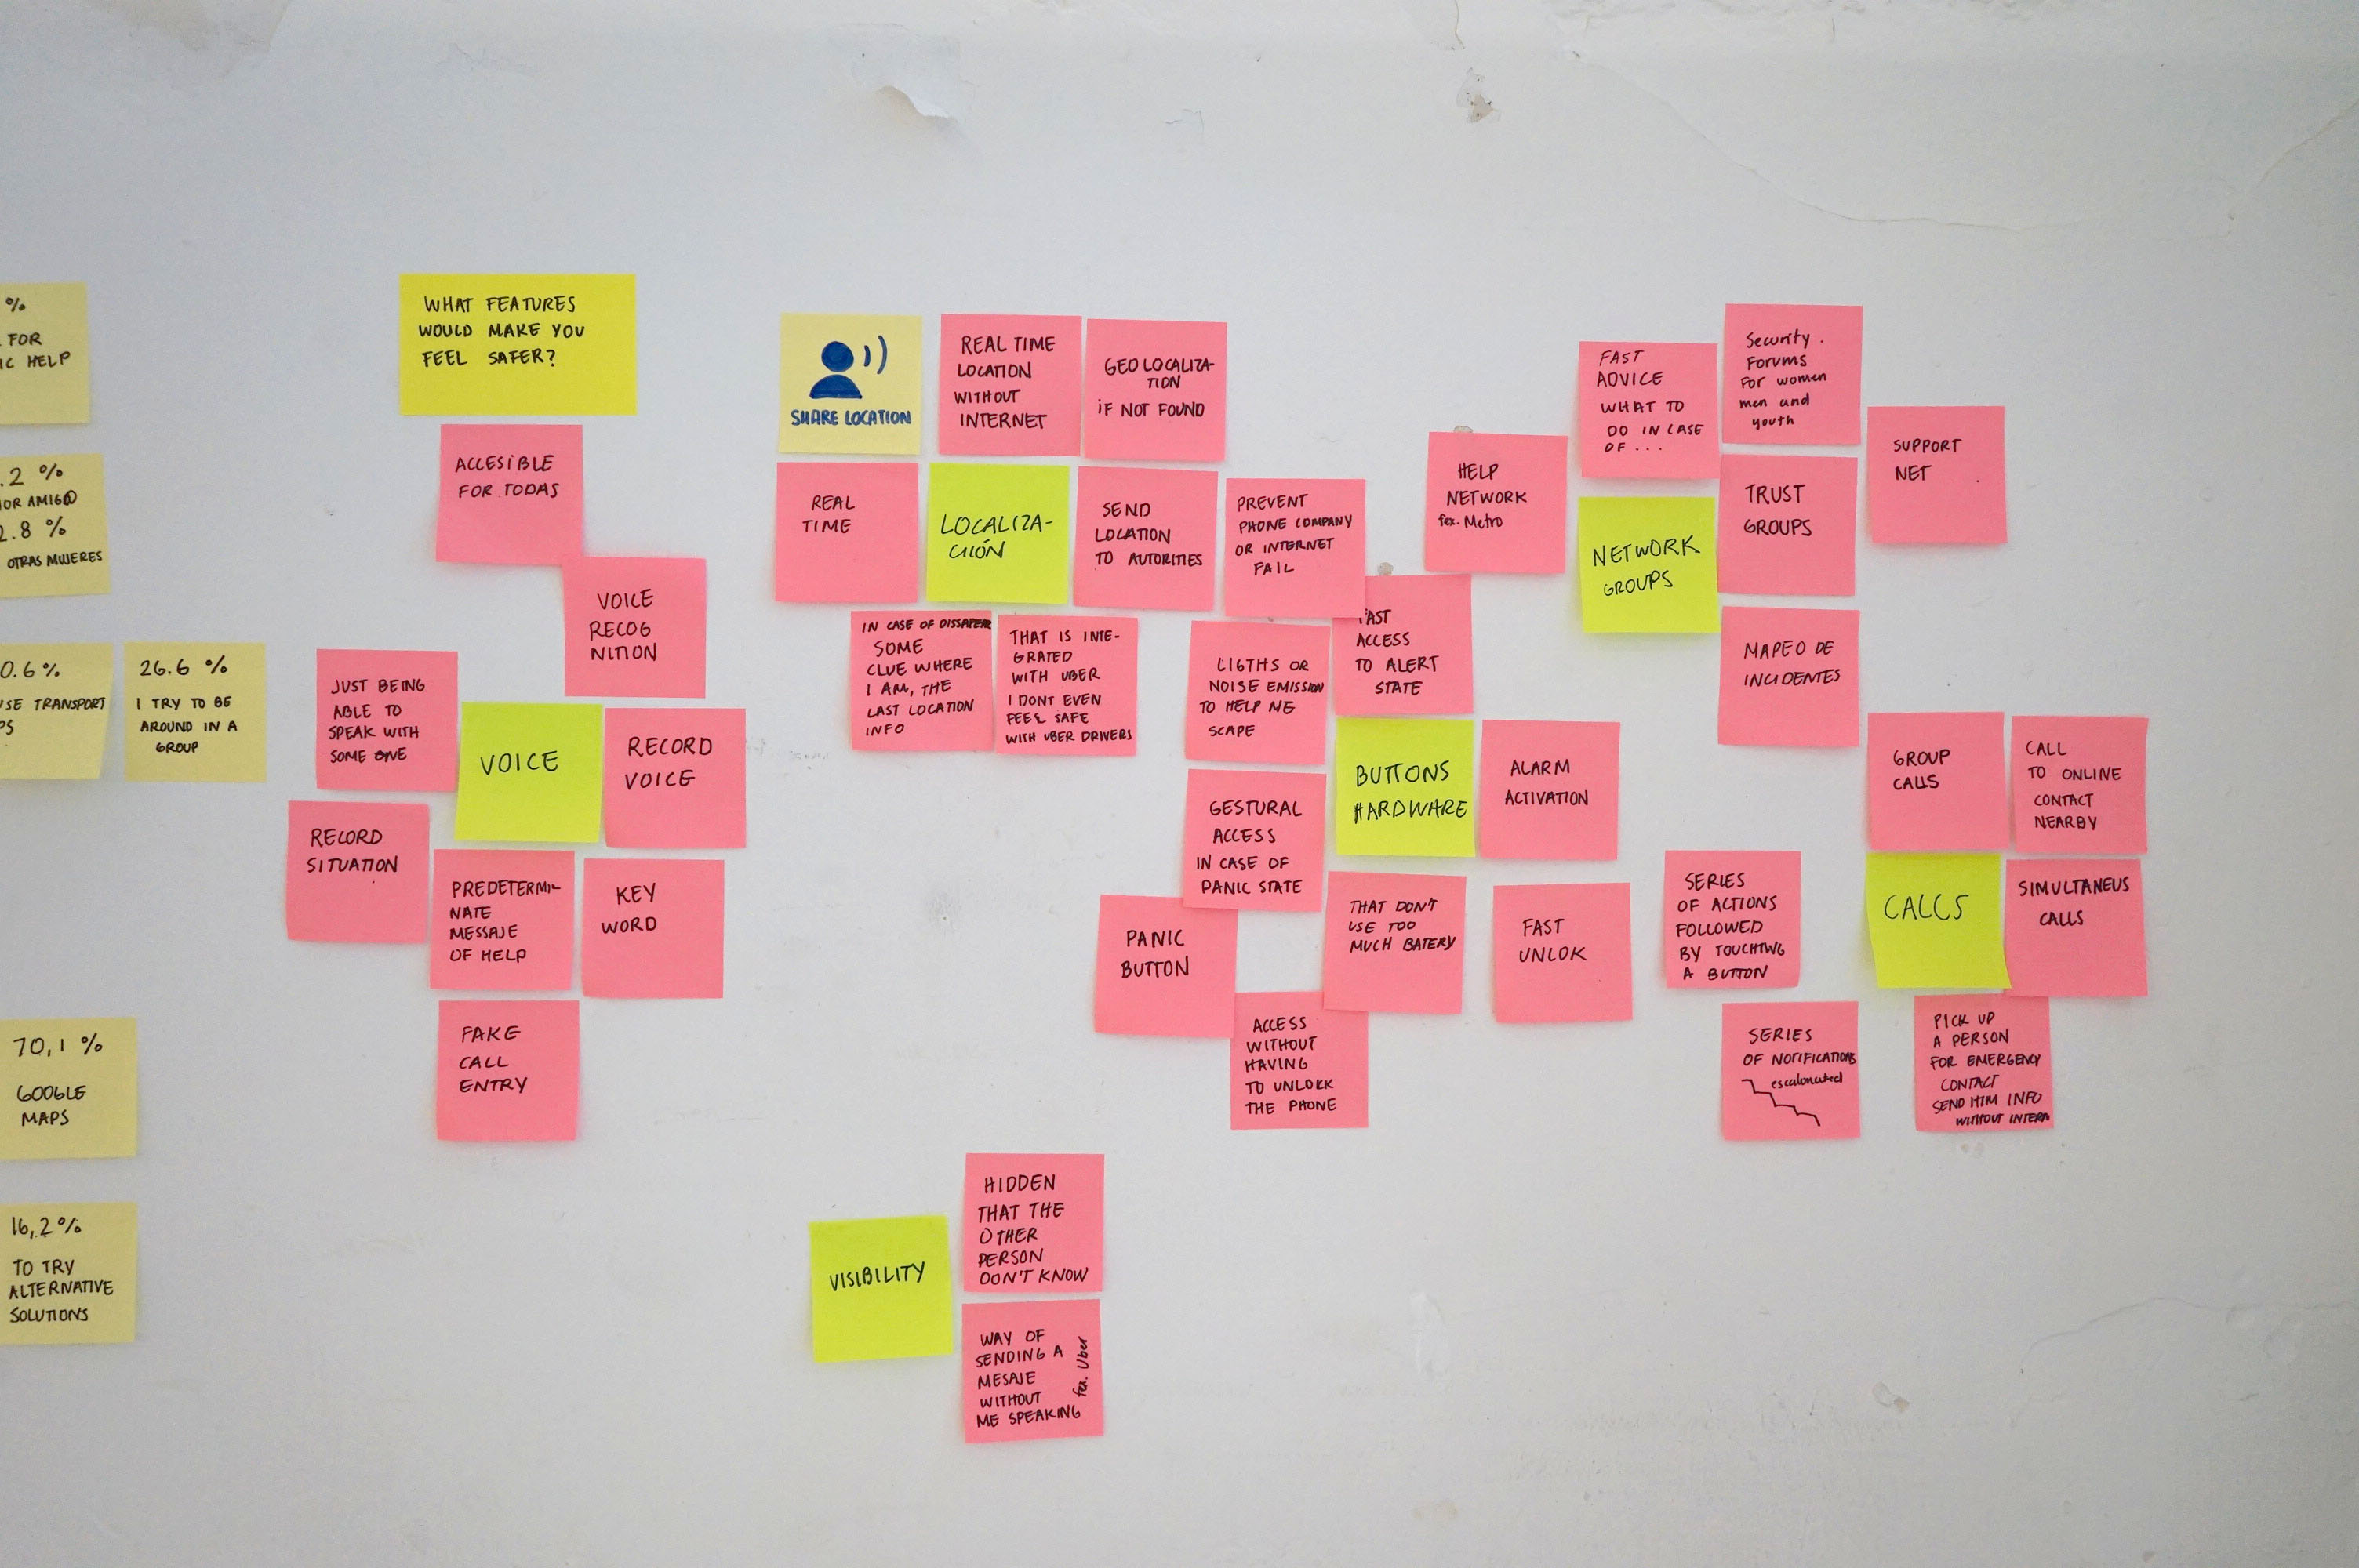 %
FOR
IC HELP
.2 %
OR AMIG@
2.8 %
OTRAS MUJERES
0.6%
SE TRANSPORT
PS
26.6 %
I TRY TO BE
AROUND IN A
GROUP
70,1 %
GOOGLE
MAPS
16,2%
TO TRY
ALTERNATIVE
SOLUTIONS
WHAT FEATURES
WOULD MAKE YOU
FEEL SAFER?
ACCESIBLE
FOR TODAS
VOICE
RECOG
NITION
JUST BEING
ABLE TO
SPEAK WITH
SOME ONE
VOICE
RECORD
VOICE
RECORD
SITUATION
PREDETERMI-
NATE
MESSAJE
OF HELP
KEY
WORD
FAKE
CALL
ENTRY
SHARE LOCATION
REAL TIME
LOCATION
WITHOUT
INTERNET
GEO LOCALIZA-
TION
IF NOT FOUND
REAL
TIME
LOCALIZA-
CIÓN
SEND
LOCATION
TO AUTORITIES
PREVENT
PHONE COMPANY
OR INTERNET
FAIL
IN CASE OF DISSAPEAR
SOME
CLUE WHERE
I AM, THE
LAST LOCATION
INFO
THAT IS INTE-
GRATED
WITH UBER
I DONT EVEN
FEEL SAFE
WITH UBER DRIVERS
LIGTHS OR
NOISE EMISSION
TO HELP ME
SCAPE
FAST
ACCESS
TO ALERT
STATE
GESTURAL
ACCESS
IN CASE OF
PANIC STATE
BUTTONS
HARDWARE
ALARM
ACTIVATION
PANIC
BUTTON
THAT DON'T
USE TOO
MUCH BATERY
FAST
UNLOK
ACCESS
WITHOUT
HAVING
TO UNLOCK
THE PHONE
HELP
NETWORK
fex. Metro
FAST
ADVICE
WHAT TO
DO IN CASE
OF ...
Security.
Forums
For women
men and
youth
SUPPORT
NET
NETWORK
GROUPS
TRUST
GROUPS
MAPEO DE
INCIDENTES
GROUP
CALLS
CALL
TO ONLINE
CONTACT
NEARBY
SERIES
OF ACTIONS
FOLLOWED
BY TOUCHTING
A BUTTON
CALLS
SIMULTANEUS
CALLS
SERIES
OF NOTIFICATIONS
escalonated
PICK UP
A PERSON
FOR EMERGENCY
CONTACT
SEND HIM INFO
WITHOUT INTERA
VISIBILITY
HIDDEN
THAT THE
OTHER
PERSON
DON'T KNOW
WAY OF
SENDING A
MESAJE
WITHOUT
ME SPEAKING
fex. Uber